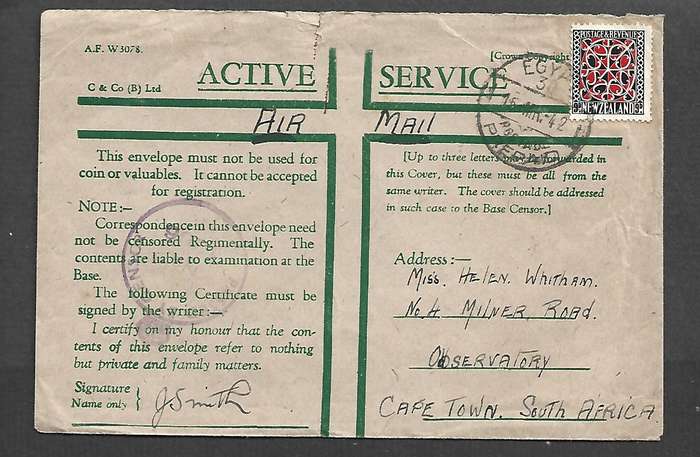 A.F. W3078.
[Crown Copyright
C & Co (B) Ltd
ACTIVE SERVICE
AIR MAIL
POSTAGE & REVENUE
9D NEW ZEALAND 9D
EGYPT
3
PREPAID
This envelope must not be used for
coin or valuables. It cannot be accepted
for registration.
NOTE:—
Correspondence in this envelope need
not be censored Regimentally. The
contents are liable to examination at the
Base.
The following Certificate must be
signed by the writer:—
I certify on my honour that the con-
tents of this envelope refer to nothing
but private and family matters.
Signature
Name only } J Smith
[Up to three letters may be forwarded in
this Cover, but these must be all from the
same writer. The cover should be addressed
in such case to the Base Censor.]
Address:—
Miss Helen Whitham.
No. 4 Milner Road.
Observatory
Cape Town. South Africa